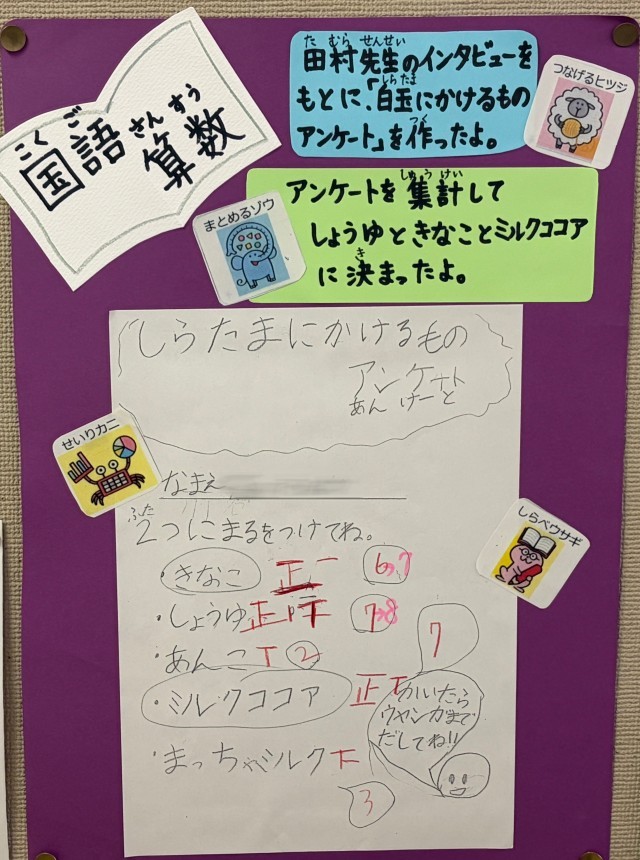 国語 算数
こくご さんすう
田村先生のインタビューを
たむらせんせい
もとに、「白玉にかけるもの
しらたま
アンケート」を作ったよ。
つく
つなげるヒツジ
アンケートを集計して
しゅうけい
しょうゆときなことミルクココア
に決まったよ。
き
まとめるゾウ
しらたまにかけるもの
アンケート
あんけーと
せいりカニ
なまえ
ふた
2つにまるをつけてね。
しらべウサギ
・きなこ 正一 6→7
・しょうゆ正 7→8
・あんこT 2
・ミルクココア 正T 7
・まっちゃミルク下 3
かいたら
だしてね!!